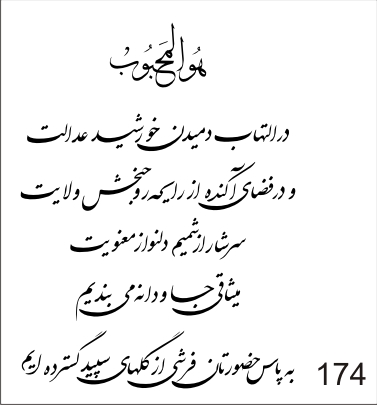 هُوَالمَحبُوب
در التهاب دمیدن خورشید عدالت
و در فضای آکنده از رایحه روحبخش ولایت
سرشار از شمیم دلنواز معنویت
میثاقی جاودانه می بندیم
به پاس حضورتان فرشی از گلهای سپید گسترده ایم
174